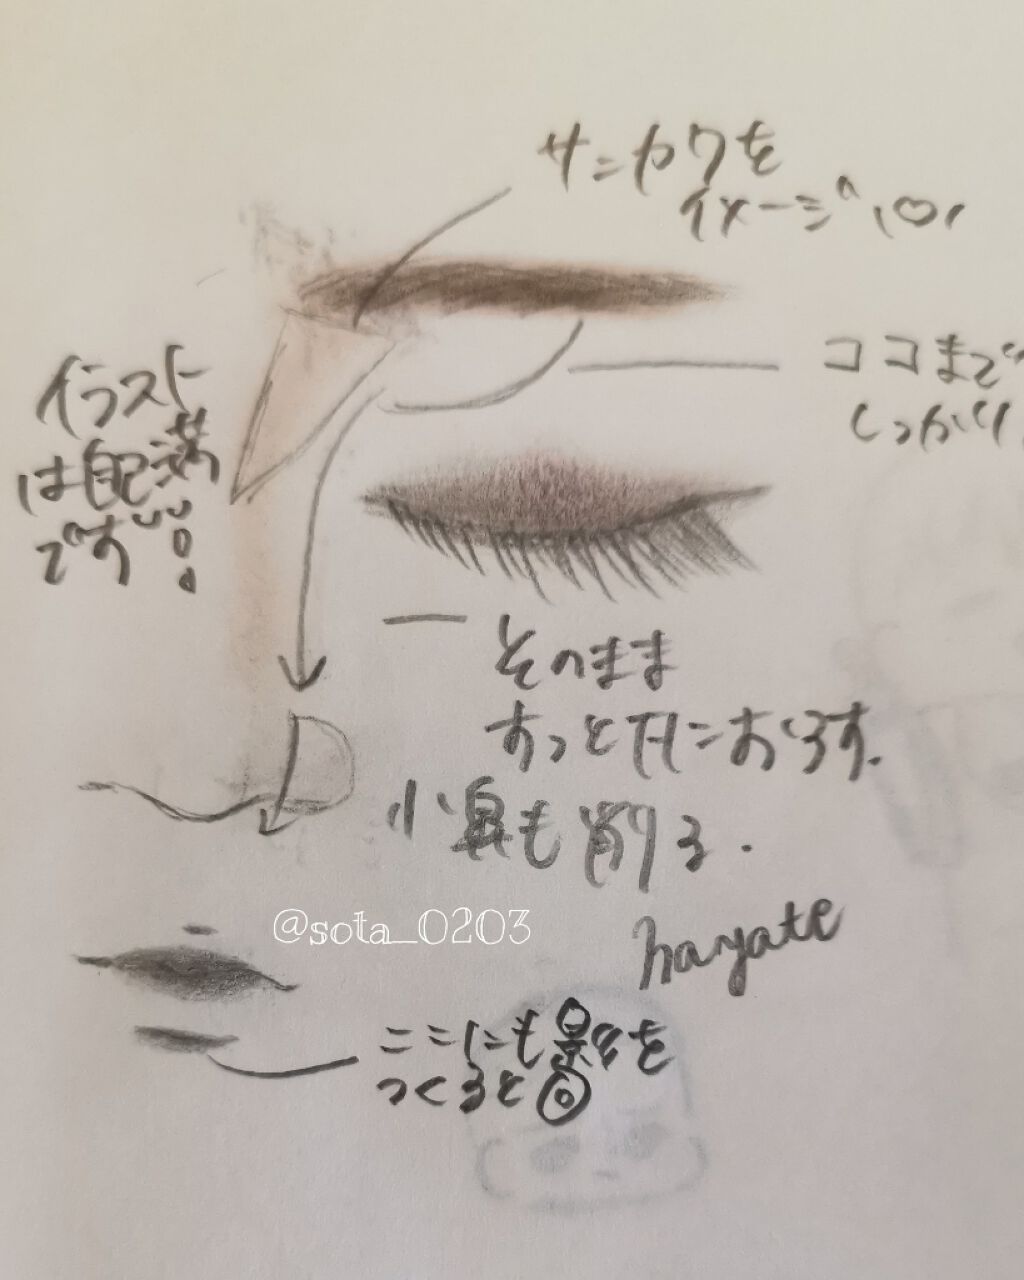 サンカクを
イメージ\(♡)/
ココまで
しっかり
イラスト
は自己満
です!!
そのまま
すっと下におろす.
小鼻も削る.
@sota_0203
hayate
ここにも影を
つくると◎